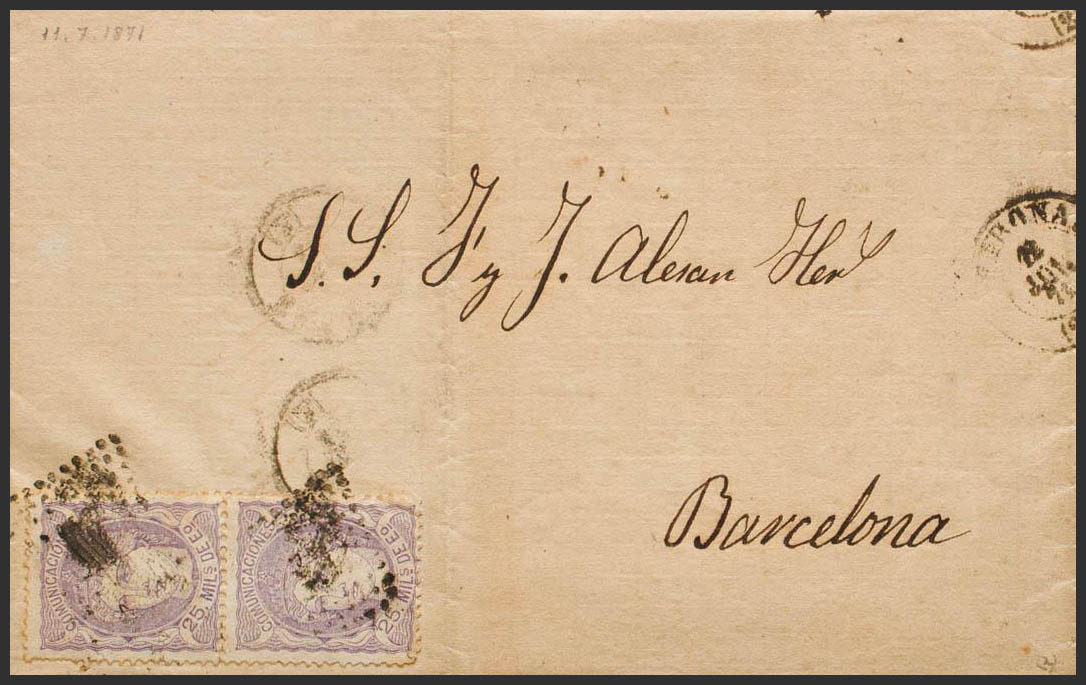 11.7.1871
S. S. F y J. Alesan Her
Barcelona
COMUNICACIONES
25 MILS DE EO
COMUNICACIONES
25 MILS DE EO
GERONA
JUL